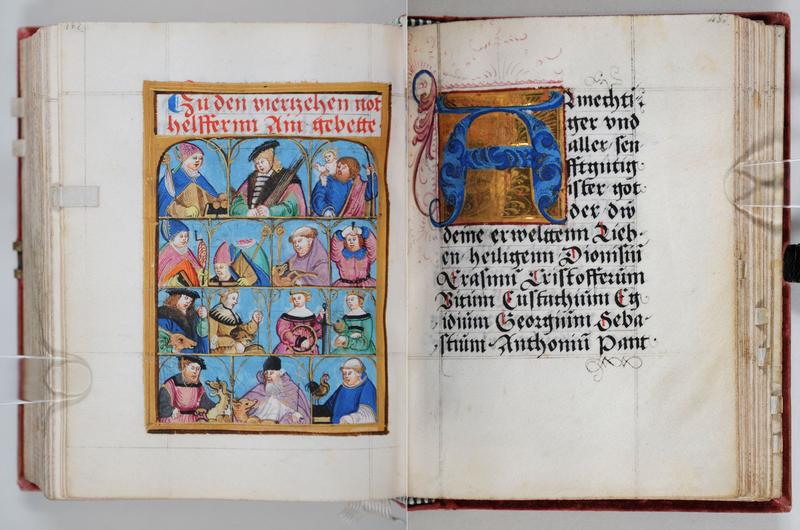 Zu den viertzehen not
helffernn Ain gebette
Amechti
ger vnd
aller sen
fftgutig
ister got
der dw
deine erweltenn Lieb
en heiligenn Dionisiū
Erasmū Cristofferum
Vitum Eustachium Eg
idium Georgium Seba
stium Anthoniū Pant